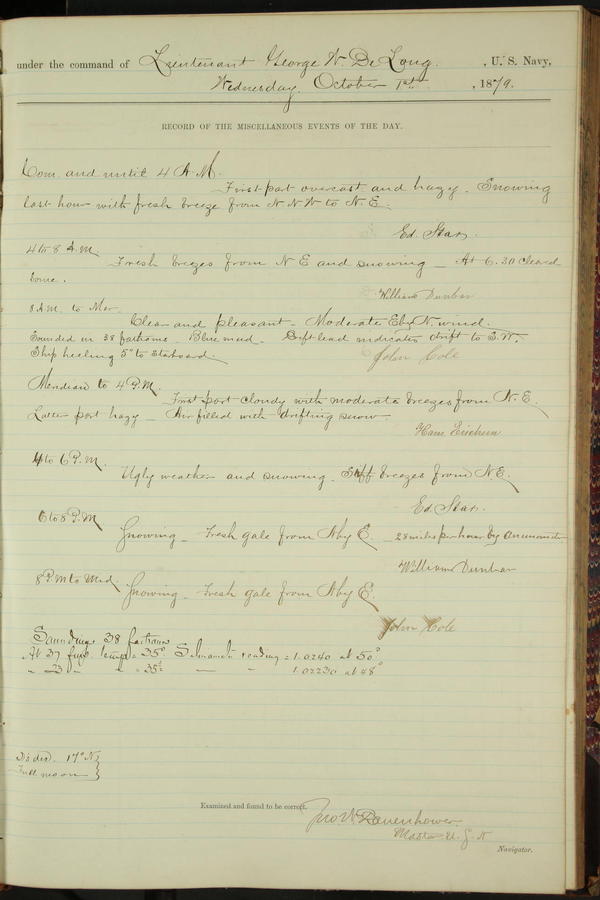 under the command of Lieutenant George W. De Long. , U. S. Navy,
Wednesday, October 1st. , 1879.
RECORD OF THE MISCELLANEOUS EVENTS OF THE DAY.
Com. and until 4 A.M.
First part overcast and hazy. Snowing
last hour with fresh breeze from N N W to N E.
Ed. Star.
4 to 8 A.M.
Fresh breezes from N E and snowing — At 6.30 cleared
some.
William Dunbar
8 A.M. to Mer.
Clear and pleasant. Moderate E by N. wind.
Sounded in 38 fathoms. Blue mud. Drift lead indicates drift to S.W.
Ship heeling 5° to starboard.
John Cole
Meridian to 4 P.M.
First part cloudy with moderate breezes from N. E.
Latter part hazy — Air filled with drifting snow.
Hans Erichsen
4 to 6 P.M.
Ugly weather and snowing. Stiff breezes from N.E.
Ed. Star.
6 to 8 P.M.
Snowing — Fresh gale from N by E. — 28 miles per hour by anemometer
William Dunbar
8 P.M to Mid.
Snowing — Fresh gale from N by E.
John Cole
Soundings 38 fathoms
At 37 temp = 35° reading = 1.0240 at 50°
" 23 " " = 35 — — 1.02230 at 48°
D's dec. 17° N
Full moon
Examined and found to be correct.
Jno W Danenhower
Master U. S. N
Navigator.